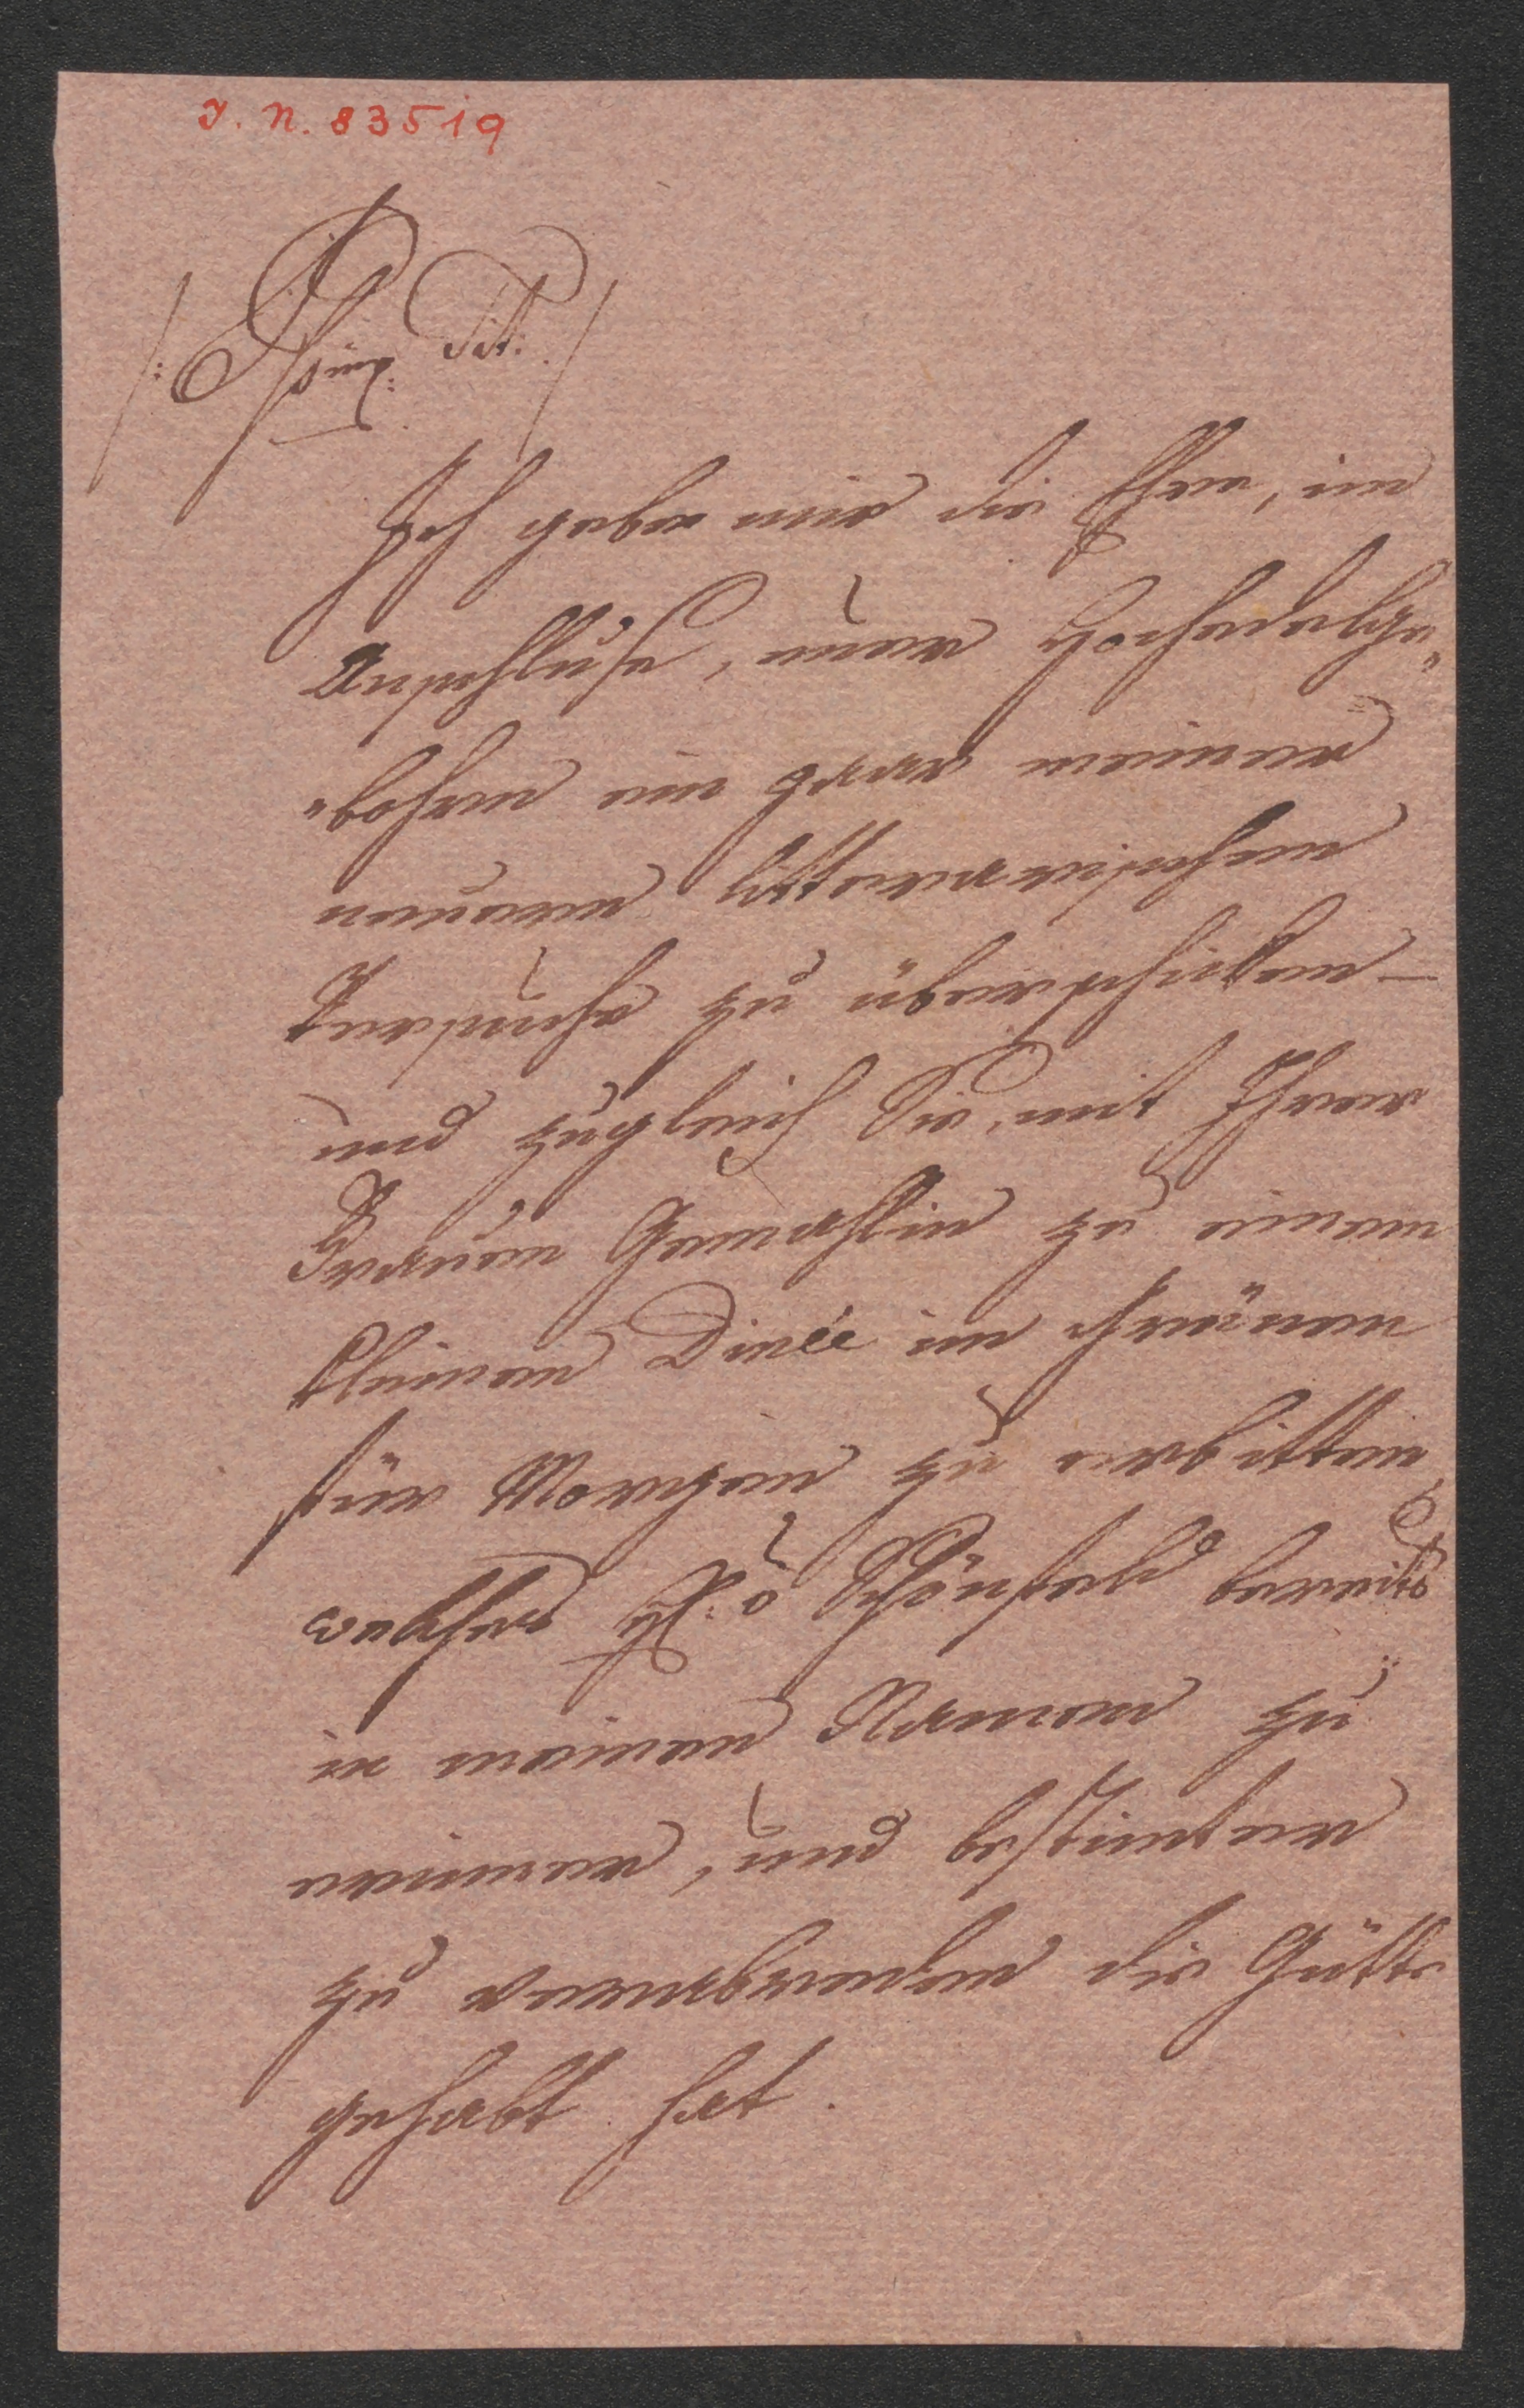 I. N. 83519
Tit:
Ich gebe mir die Ehre, im
Anschluße, euer Hochedelge„
„bohrn ein paar meiner
neuern litterarischen
Versuche zu überschicken –
und zugleich Sie, mit Ihrer
Frauen Gemahlin zu einem
kleinen Dinée im Grünen
für Morgen zu erbitten,
welches H: Schönfeld bereits
in meinen Namen zu
erinnern, und bestimter
zu verabreden die Gütte
gehabt hat.